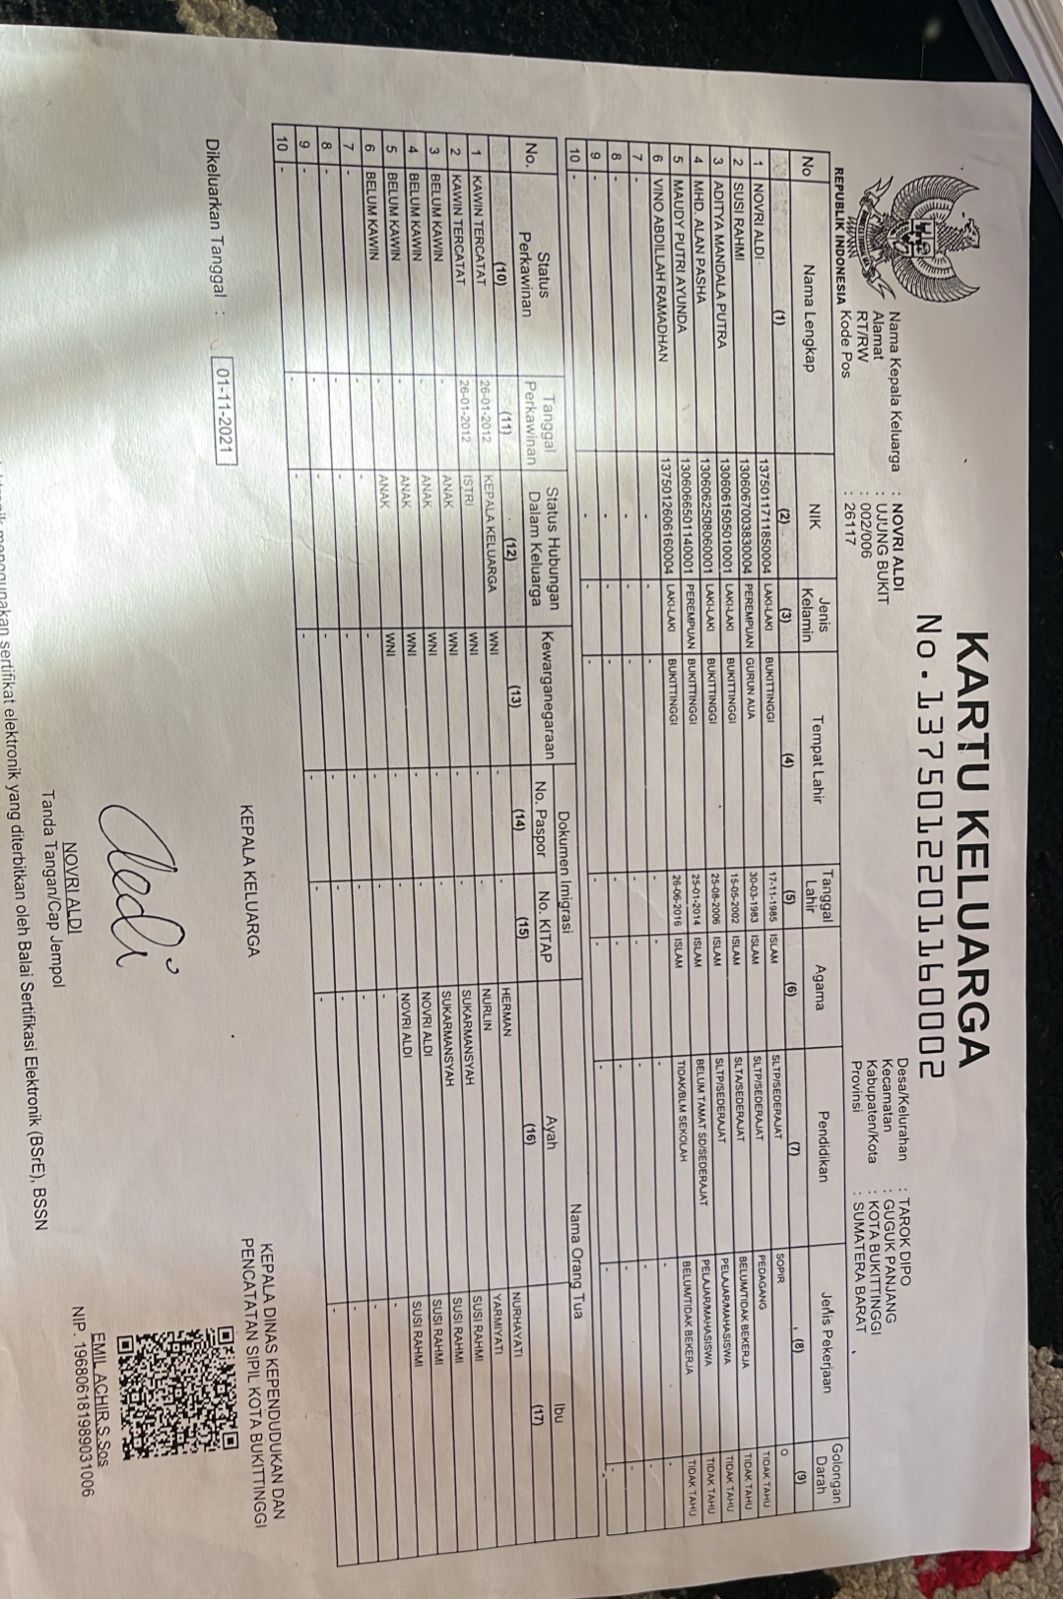 KARTU KELUARGA
No. 1375012201160002
REPUBLIK INDONESIA
Nama Kepala Keluarga : NOVRI ALDI
Alamat : UJUNG BUKIT
RT/RW : 002/006
Kode Pos : 26117
Desa/Kelurahan : TAROK DIPO
Kecamatan : GUGUK PANJANG
Kabupaten/Kota : KOTA BUKITTINGGI
Provinsi : SUMATERA BARAT
No Nama Lengkap NIK Jenis Kelamin Tempat Lahir Tanggal Lahir Agama Pendidikan Jenis Pekerjaan Golongan Darah
(1) (2) (3) (4) (5) (6) (7) (8) (9)
1 NOVRI ALDI 1375011711850004 LAKI-LAKI BUKITTINGGI 17-11-1985 ISLAM SLTP/SEDERAJAT SOPIR O
2 SUSI RAHMI 1306067003830004 PEREMPUAN GURUN AUA 30-03-1983 ISLAM SLTP/SEDERAJAT PEDAGANG TIDAK TAHU
3 ADITYA MANDALA PUTRA 1306061505010001 LAKI-LAKI BUKITTINGGI 15-05-2002 ISLAM SLTA/SEDERAJAT BELUM/TIDAK BEKERJA TIDAK TAHU
4 MHD. ALAN PASHA 1306062508060001 LAKI-LAKI BUKITTINGGI 25-08-2006 ISLAM SLTP/SEDERAJAT PELAJAR/MAHASISWA TIDAK TAHU
5 MAUDY PUTRI AYUNDA 1306066501140001 PEREMPUAN BUKITTINGGI 25-01-2014 ISLAM BELUM TAMAT SD/SEDERAJAT PELAJAR/MAHASISWA TIDAK TAHU
6 VINO ABDILLAH RAMADHAN 1375012606160004 LAKI-LAKI BUKITTINGGI 26-06-2016 ISLAM TIDAK/BLM SEKOLAH BELUM/TIDAK BEKERJA TIDAK TAHU
7 - - - - - - - - -
8 - - - - - - - - -
9 - - - - - - - - -
10 - - - - - - - - -
No. Status Perkawinan Tanggal Perkawinan Status Hubungan Dalam Keluarga Kewarganegaraan Dokumen Imigrasi Nama Orang Tua
No. Paspor No. KITAP Ayah Ibu
(10) (11) (12) (13) (14) (15) (16) (17)
1 KAWIN TERCATAT 26-01-2012 KEPALA KELUARGA WNI - - HERMAN NURHAYATI
2 KAWIN TERCATAT 26-01-2012 ISTRI WNI - - NURLIN YARMIYATI
3 BELUM KAWIN - ANAK WNI - - SUKARMANSYAH SUSI RAHMI
4 BELUM KAWIN - ANAK WNI - - SUKARMANSYAH SUSI RAHMI
5 BELUM KAWIN - ANAK WNI - - NOVRI ALDI SUSI RAHMI
6 BELUM KAWIN - ANAK WNI - - NOVRI ALDI SUSI RAHMI
7 - - - - - - - -
8 - - - - - - - -
9 - - - - - - - -
10 - - - - - - - -
Dikeluarkan Tanggal : 01-11-2021
KEPALA KELUARGA
NOVRI ALDI
Tanda Tangan/Cap Jempol
KEPALA DINAS KEPENDUDUKAN DAN
PENCATATAN SIPIL KOTA BUKITTINGGI
EMIL ACHIR,S.Sos
NIP. 196806181989031006
menggunakan sertifikat elektronik yang diterbitkan oleh Balai Sertifikasi Elektronik (BSrE), BSSN